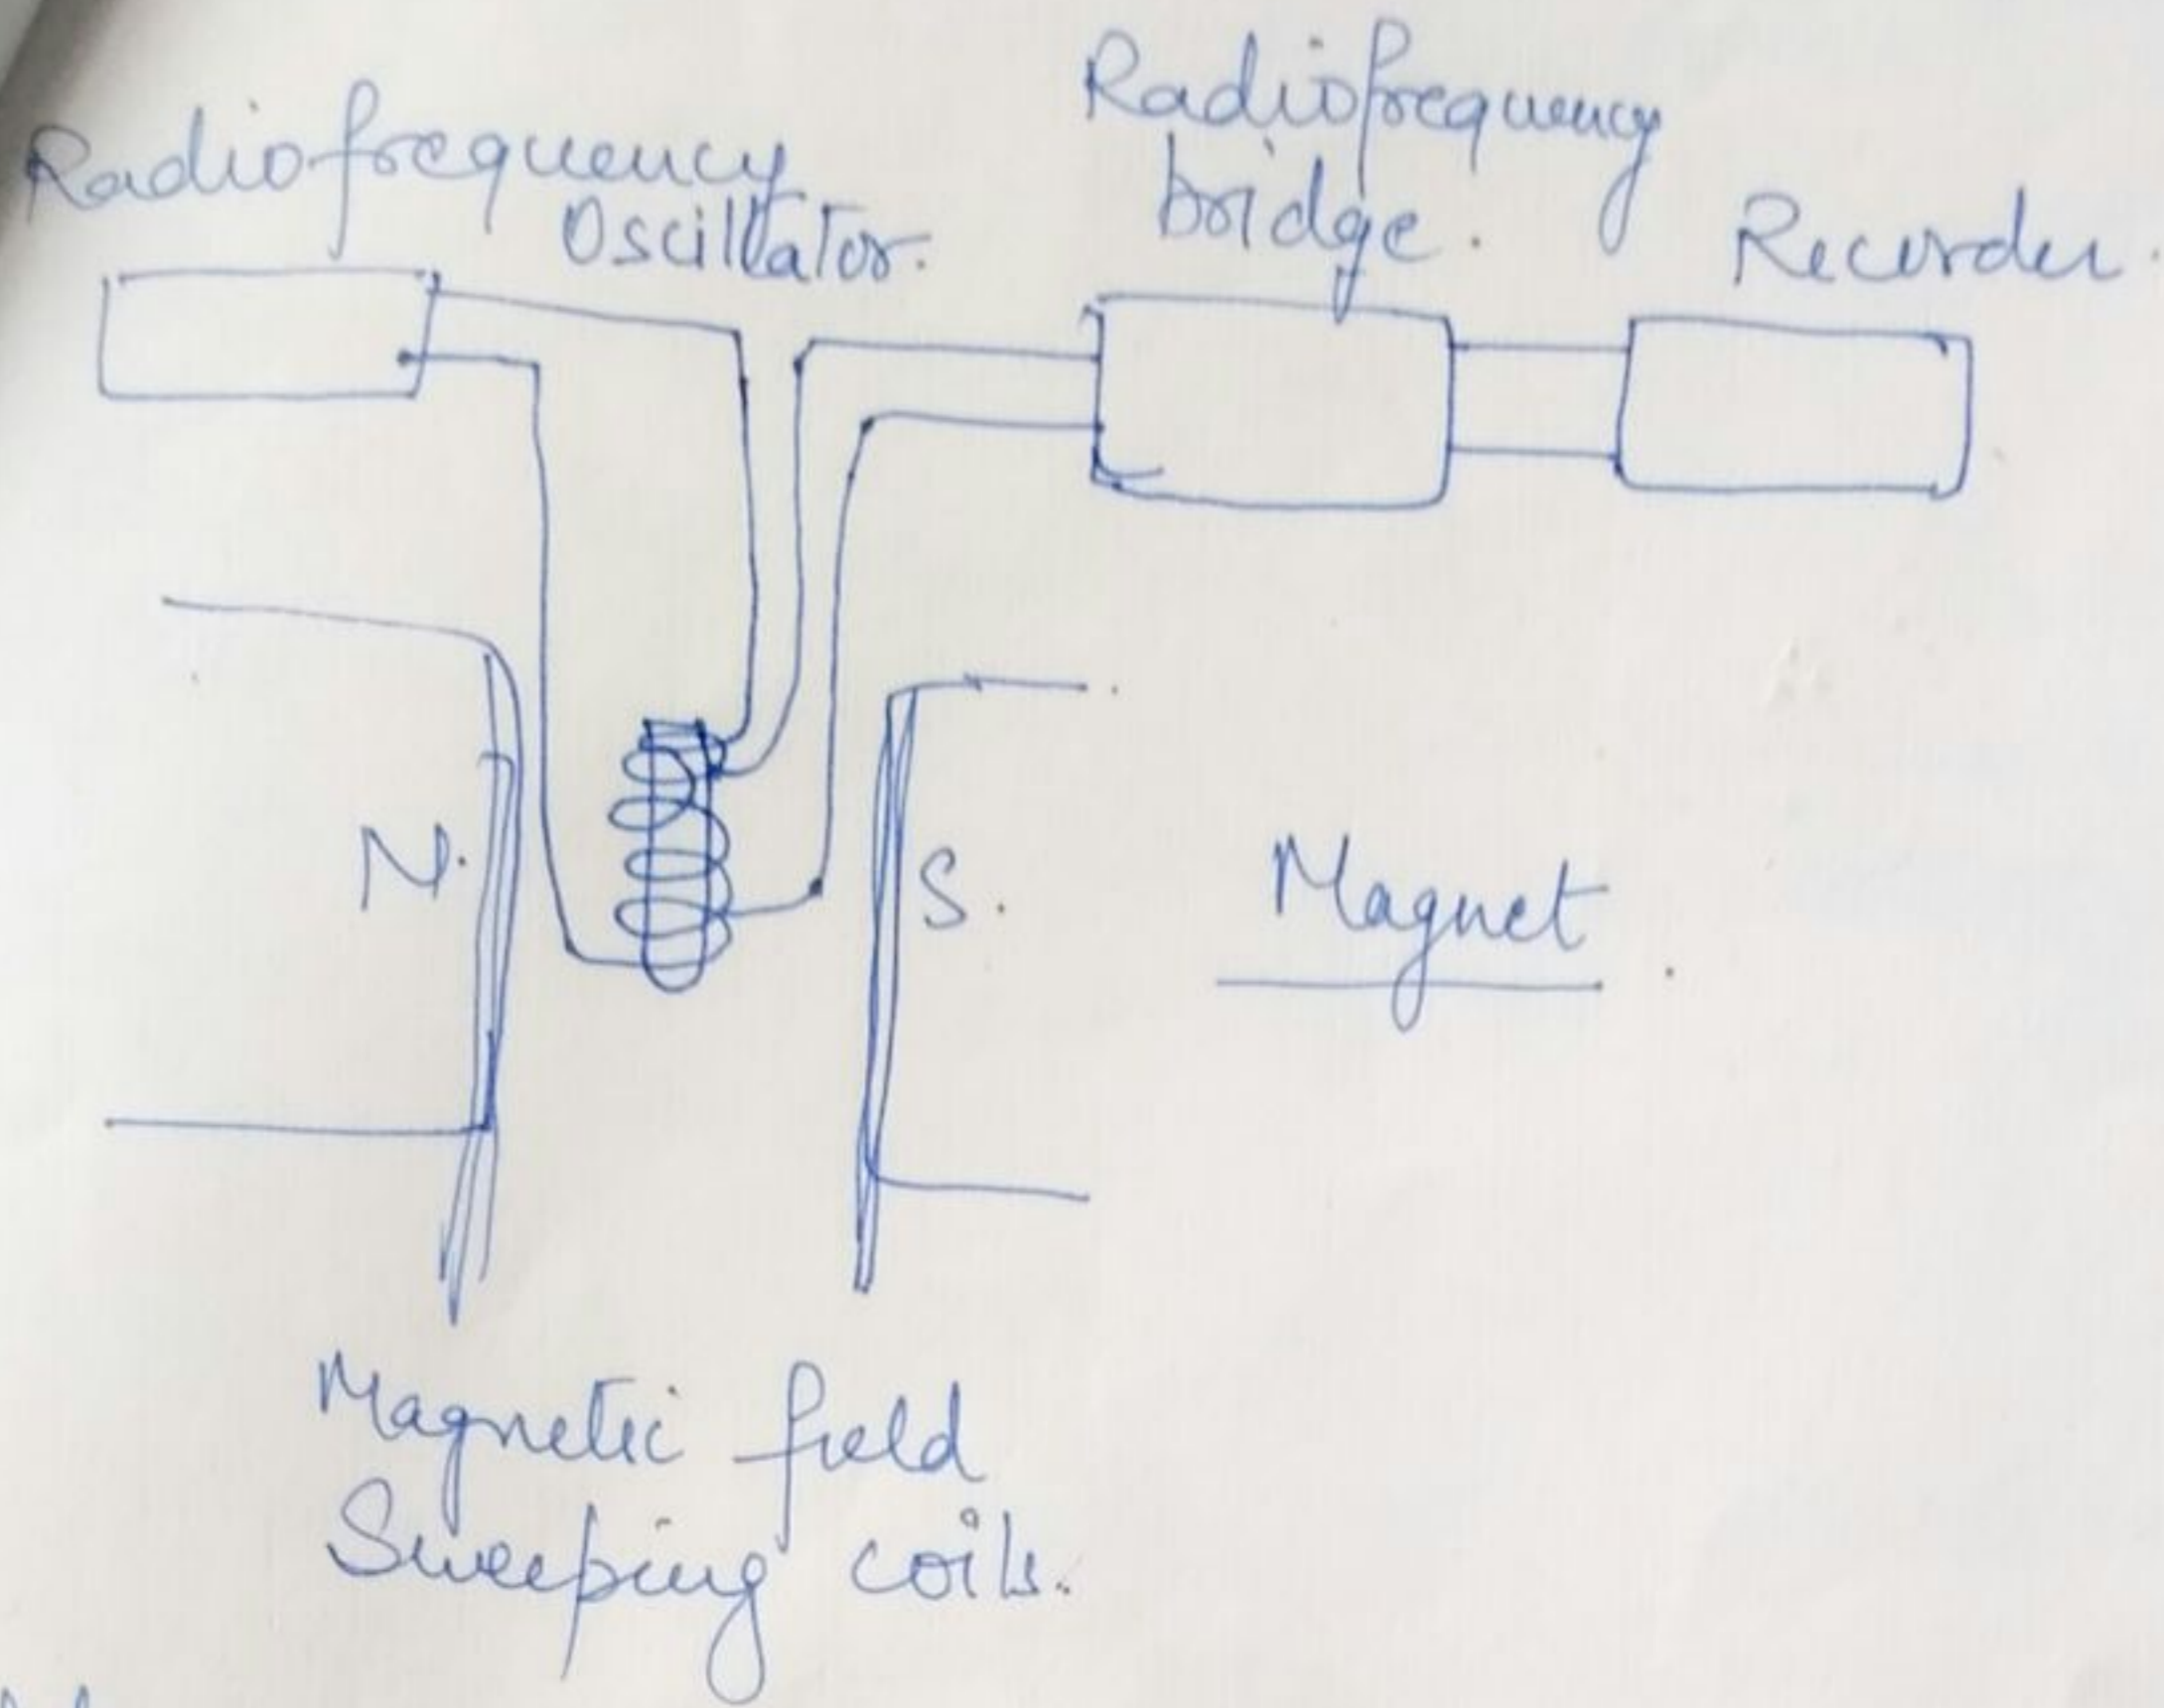 Radiofrequency
Oscillator.
Radiofrequency
bridge.
Recorder.
N.
S.
Magnet
Magnetic field
Sweeping coils.